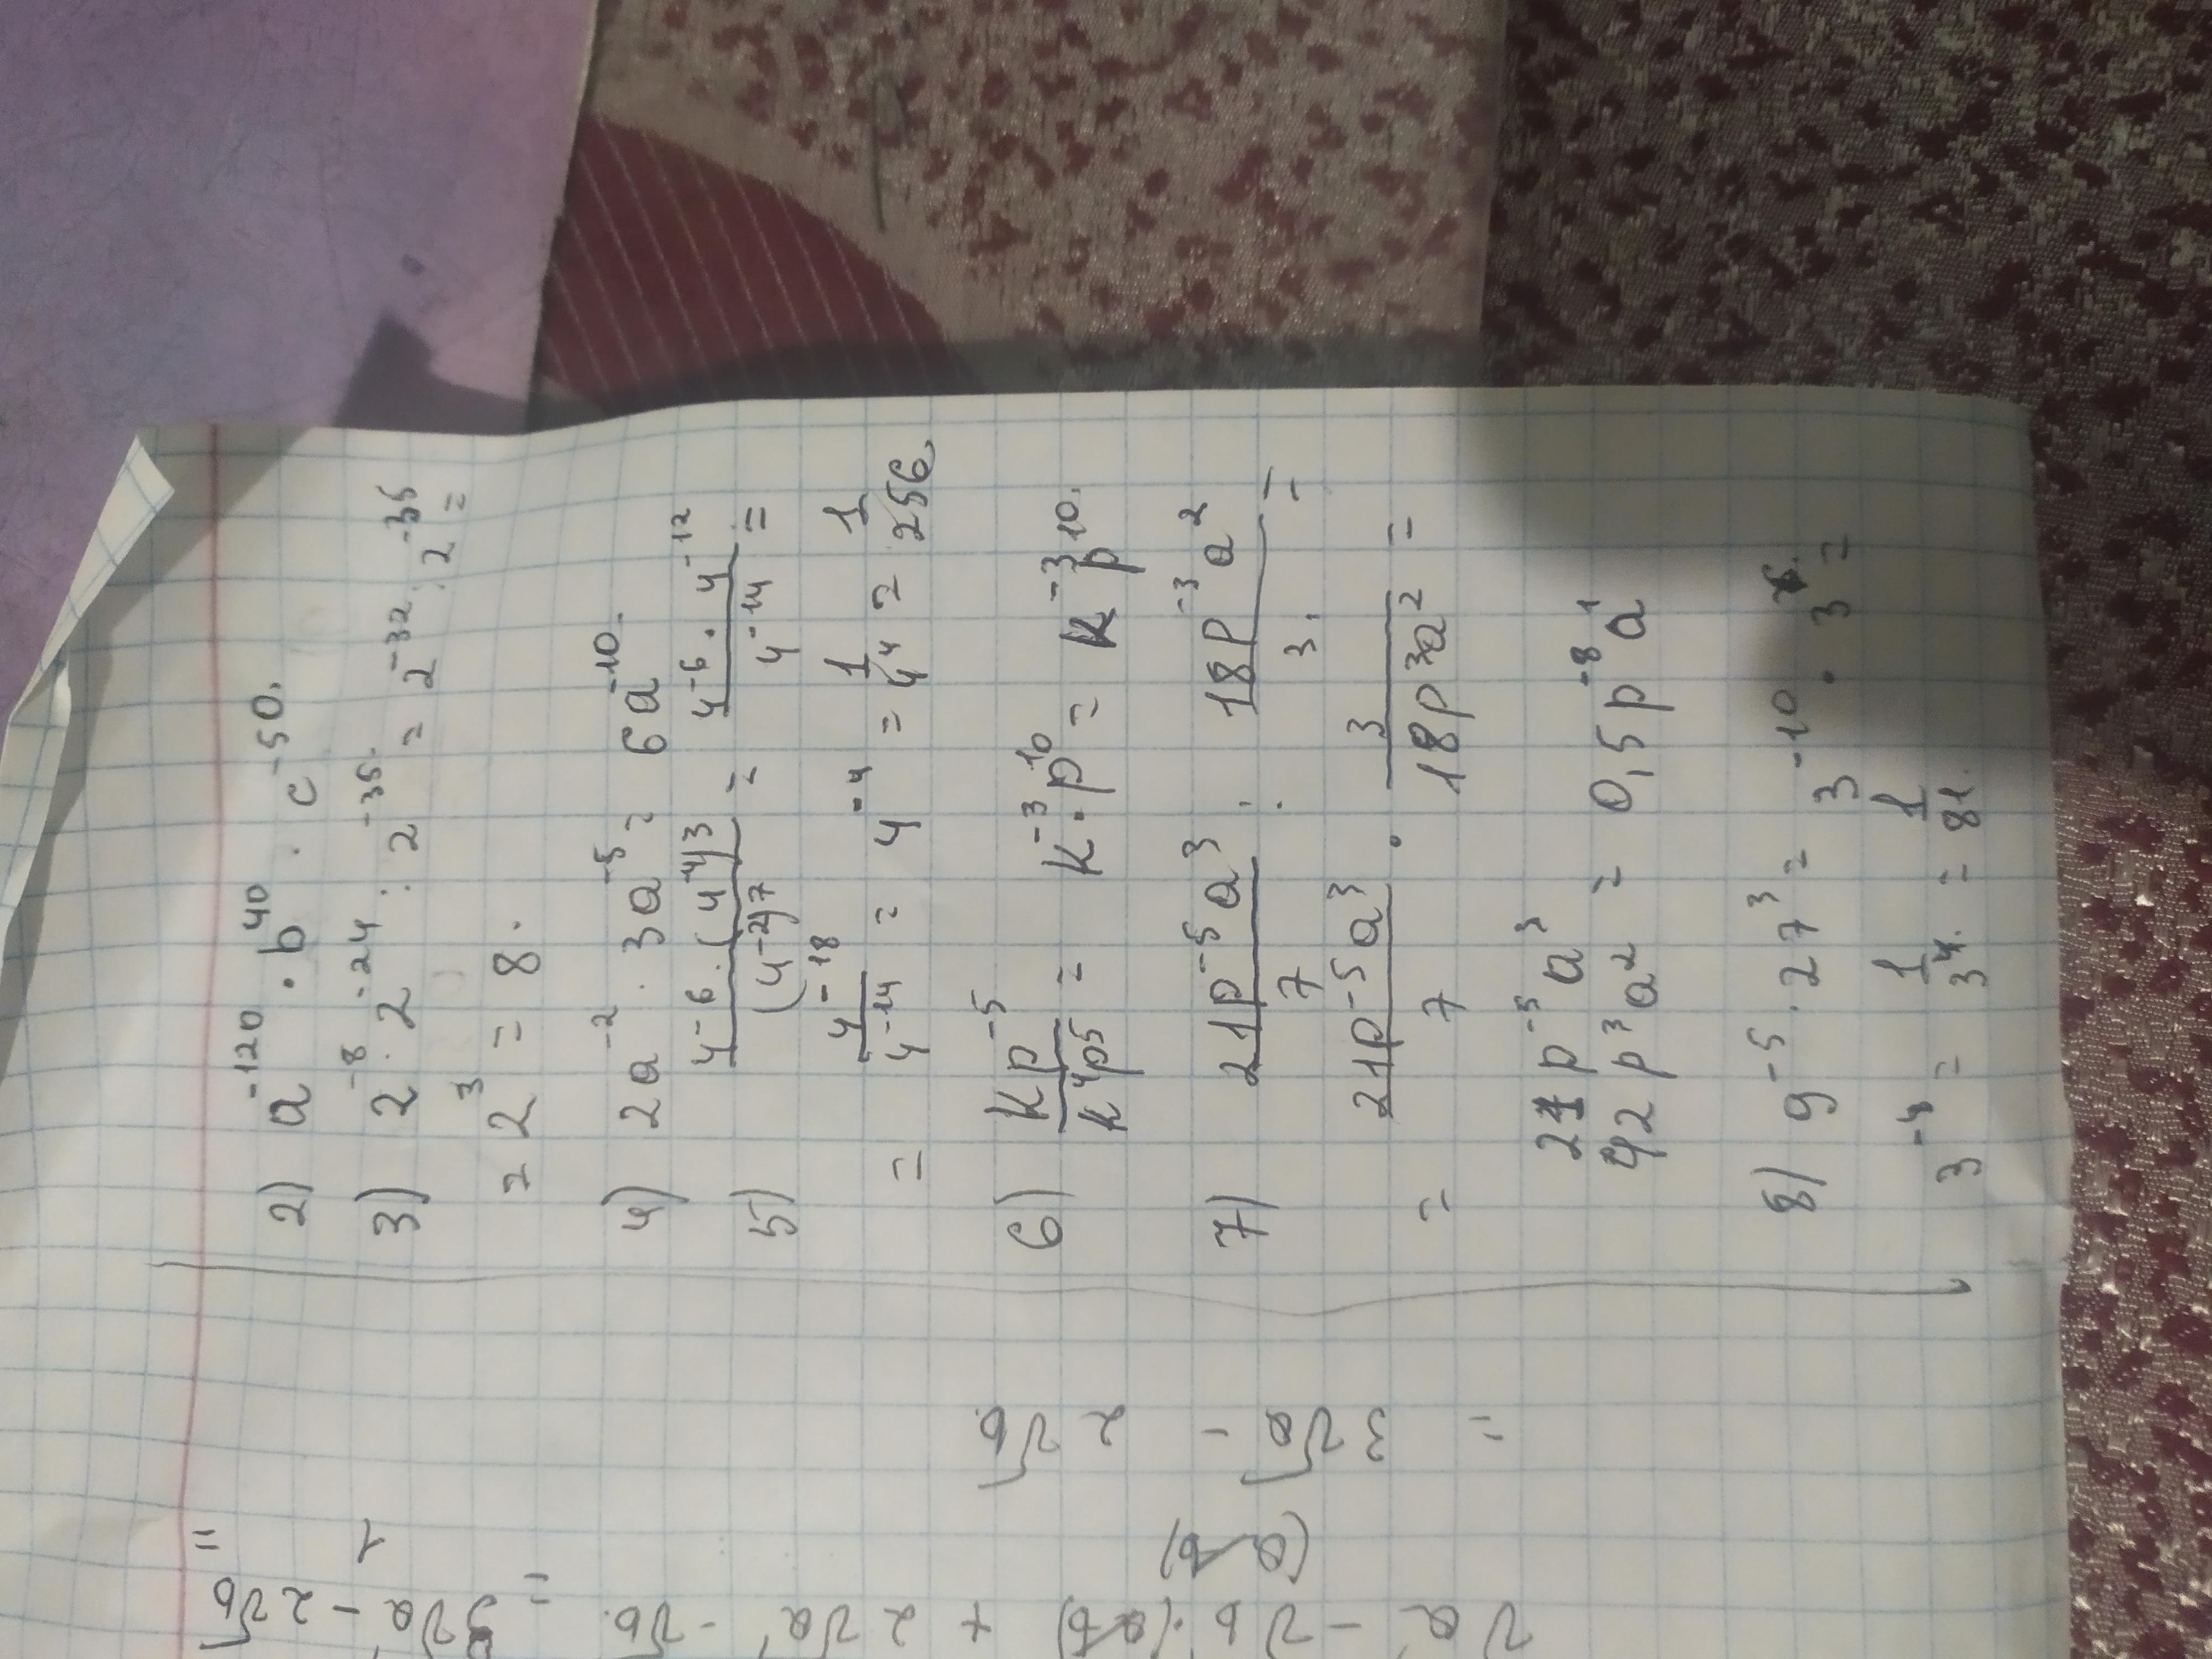 2) a⁻¹²⁰ · b⁴⁰ · c⁻⁵⁰.
3) 2⁻⁸ · 2⁻²⁴ : 2⁻³⁵ = 2⁻³² : 2⁻³⁵ =
= 2³ = 8.
4) 2a⁻² · 3a⁻⁵ = 6a⁻¹⁰.
5) 4⁻⁶ · (4⁻⁴)³ / (4⁻²)⁷ = 4⁻⁶ · 4⁻¹² / 4⁻¹⁴ =
= 4⁻¹⁸ / 4⁻¹⁴ = 4⁻⁴ = 1/4⁴ = 1/256
6) kp⁻⁵ / k⁴p⁵ = k⁻³ · p¹⁰ = k⁻³p¹⁰.
7) 21p⁻⁵a³ / 7 : 18p⁻³a² / 3 =
= 21p⁻⁵a³ / 7 · 3 / 18p³a² =
21p⁻⁵a³ / 42p³a² = 0,5p⁻⁸a¹
8) 9⁻⁵ · 27³ = 3⁻¹⁰ · 3⁶ =
3⁻⁴ = 1/3⁴ = 1/81.
= 3√a - 2√b.
(a-b)
√a - √b · (a-b) + 2√a - √b. = 3√a - 2√b =
1